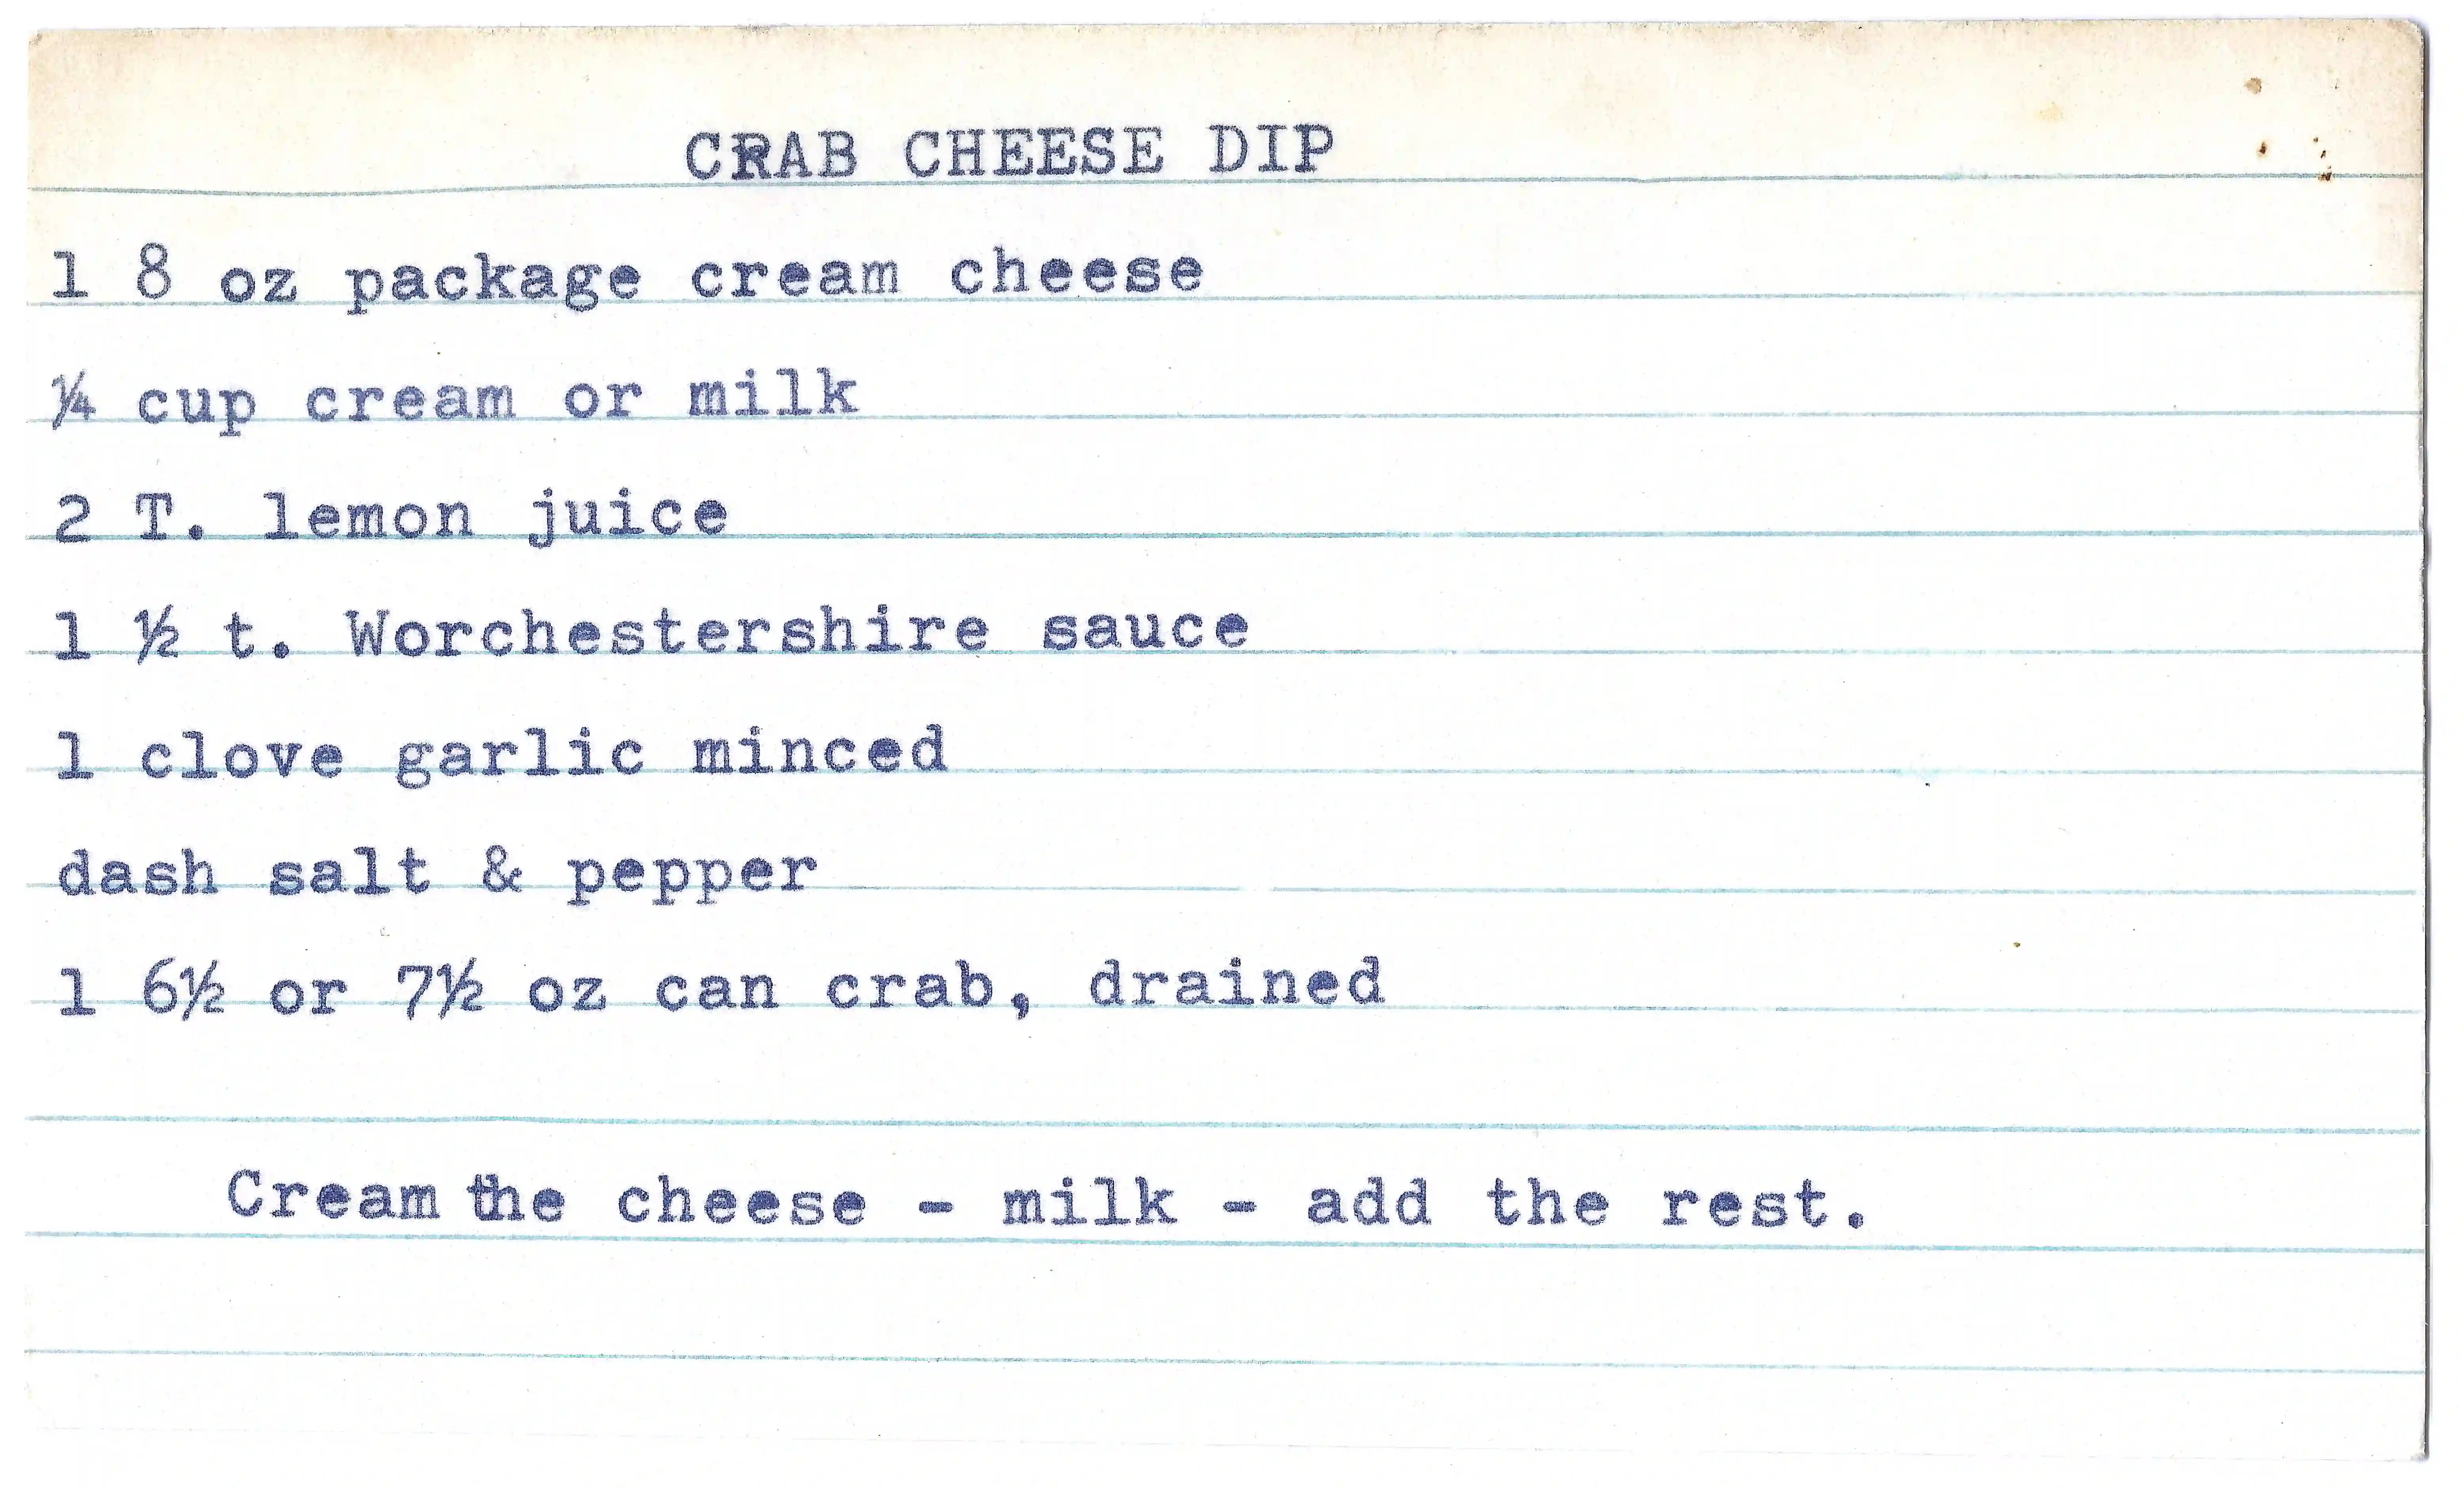 CRAB CHEESE DIP
1 8 oz package cream cheese
¼ cup cream or milk
2 T. lemon juice
1 ½ t. Worchestershire sauce
1 clove garlic minced
dash salt & pepper
1 6½ or 7½ oz can crab, drained
Cream the cheese - milk - add the rest.